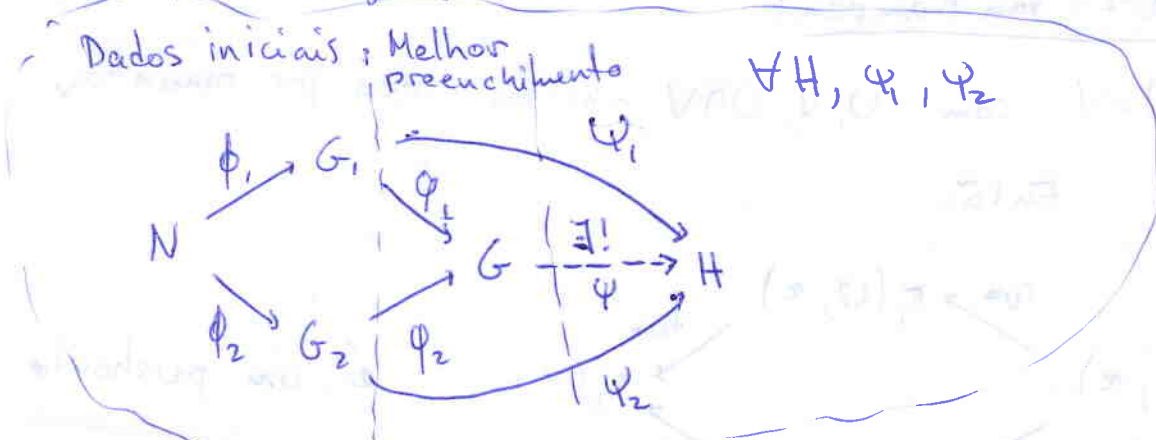 Dados iniciais ; Melhor preenchimento
∀ H, ψ₁, ψ₂
ϕ₁ G₁ φ₁ ψ₁
N G ∃! ψ H
ϕ₂ G₂ φ₂ ψ₂